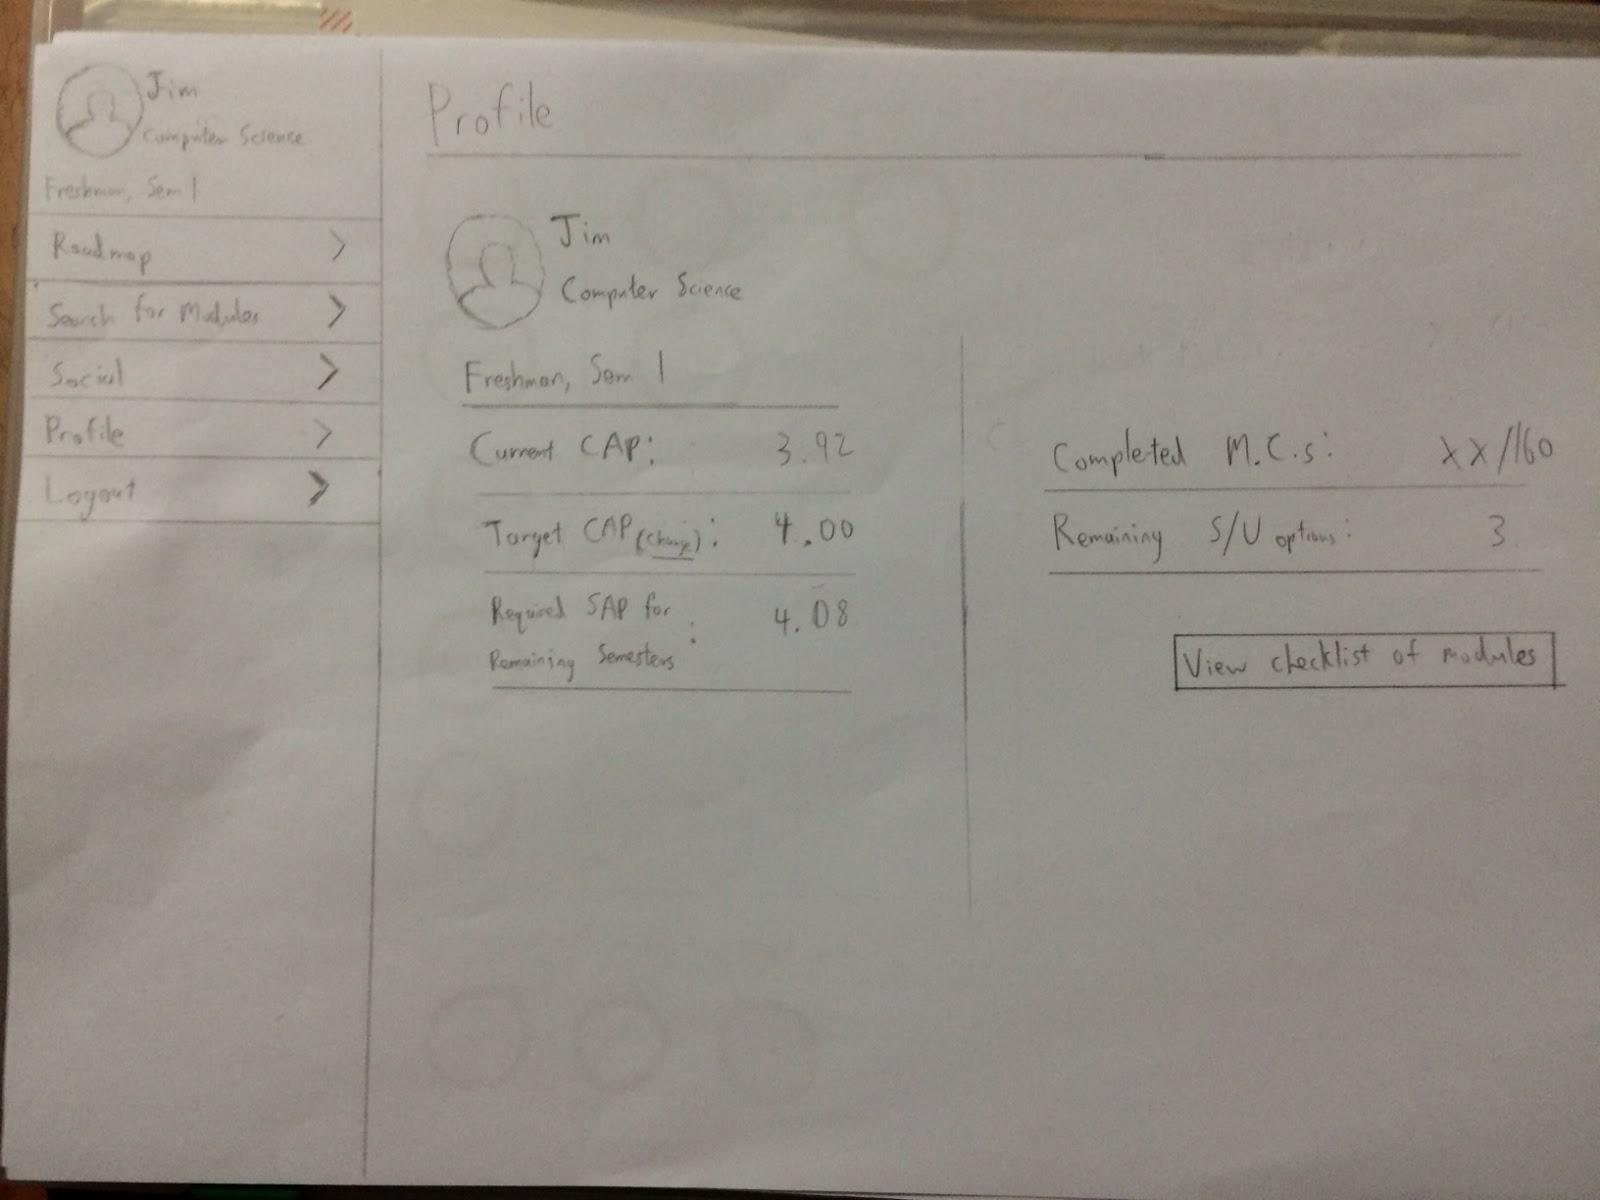 Jim
Computer Science
Freshman, Sem 1
Roadmap >
Search for Modules >
Social >
Profile >
Logout >
Profile
Jim
Computer Science
Freshman, Sem 1
Current CAP: 3.92
Target CAP (change): 4.00
Required SAP for
Remaining Semesters : 4.08
Completed M.C.s: XX/160
Remaining S/U options: 3
View checklist of modules